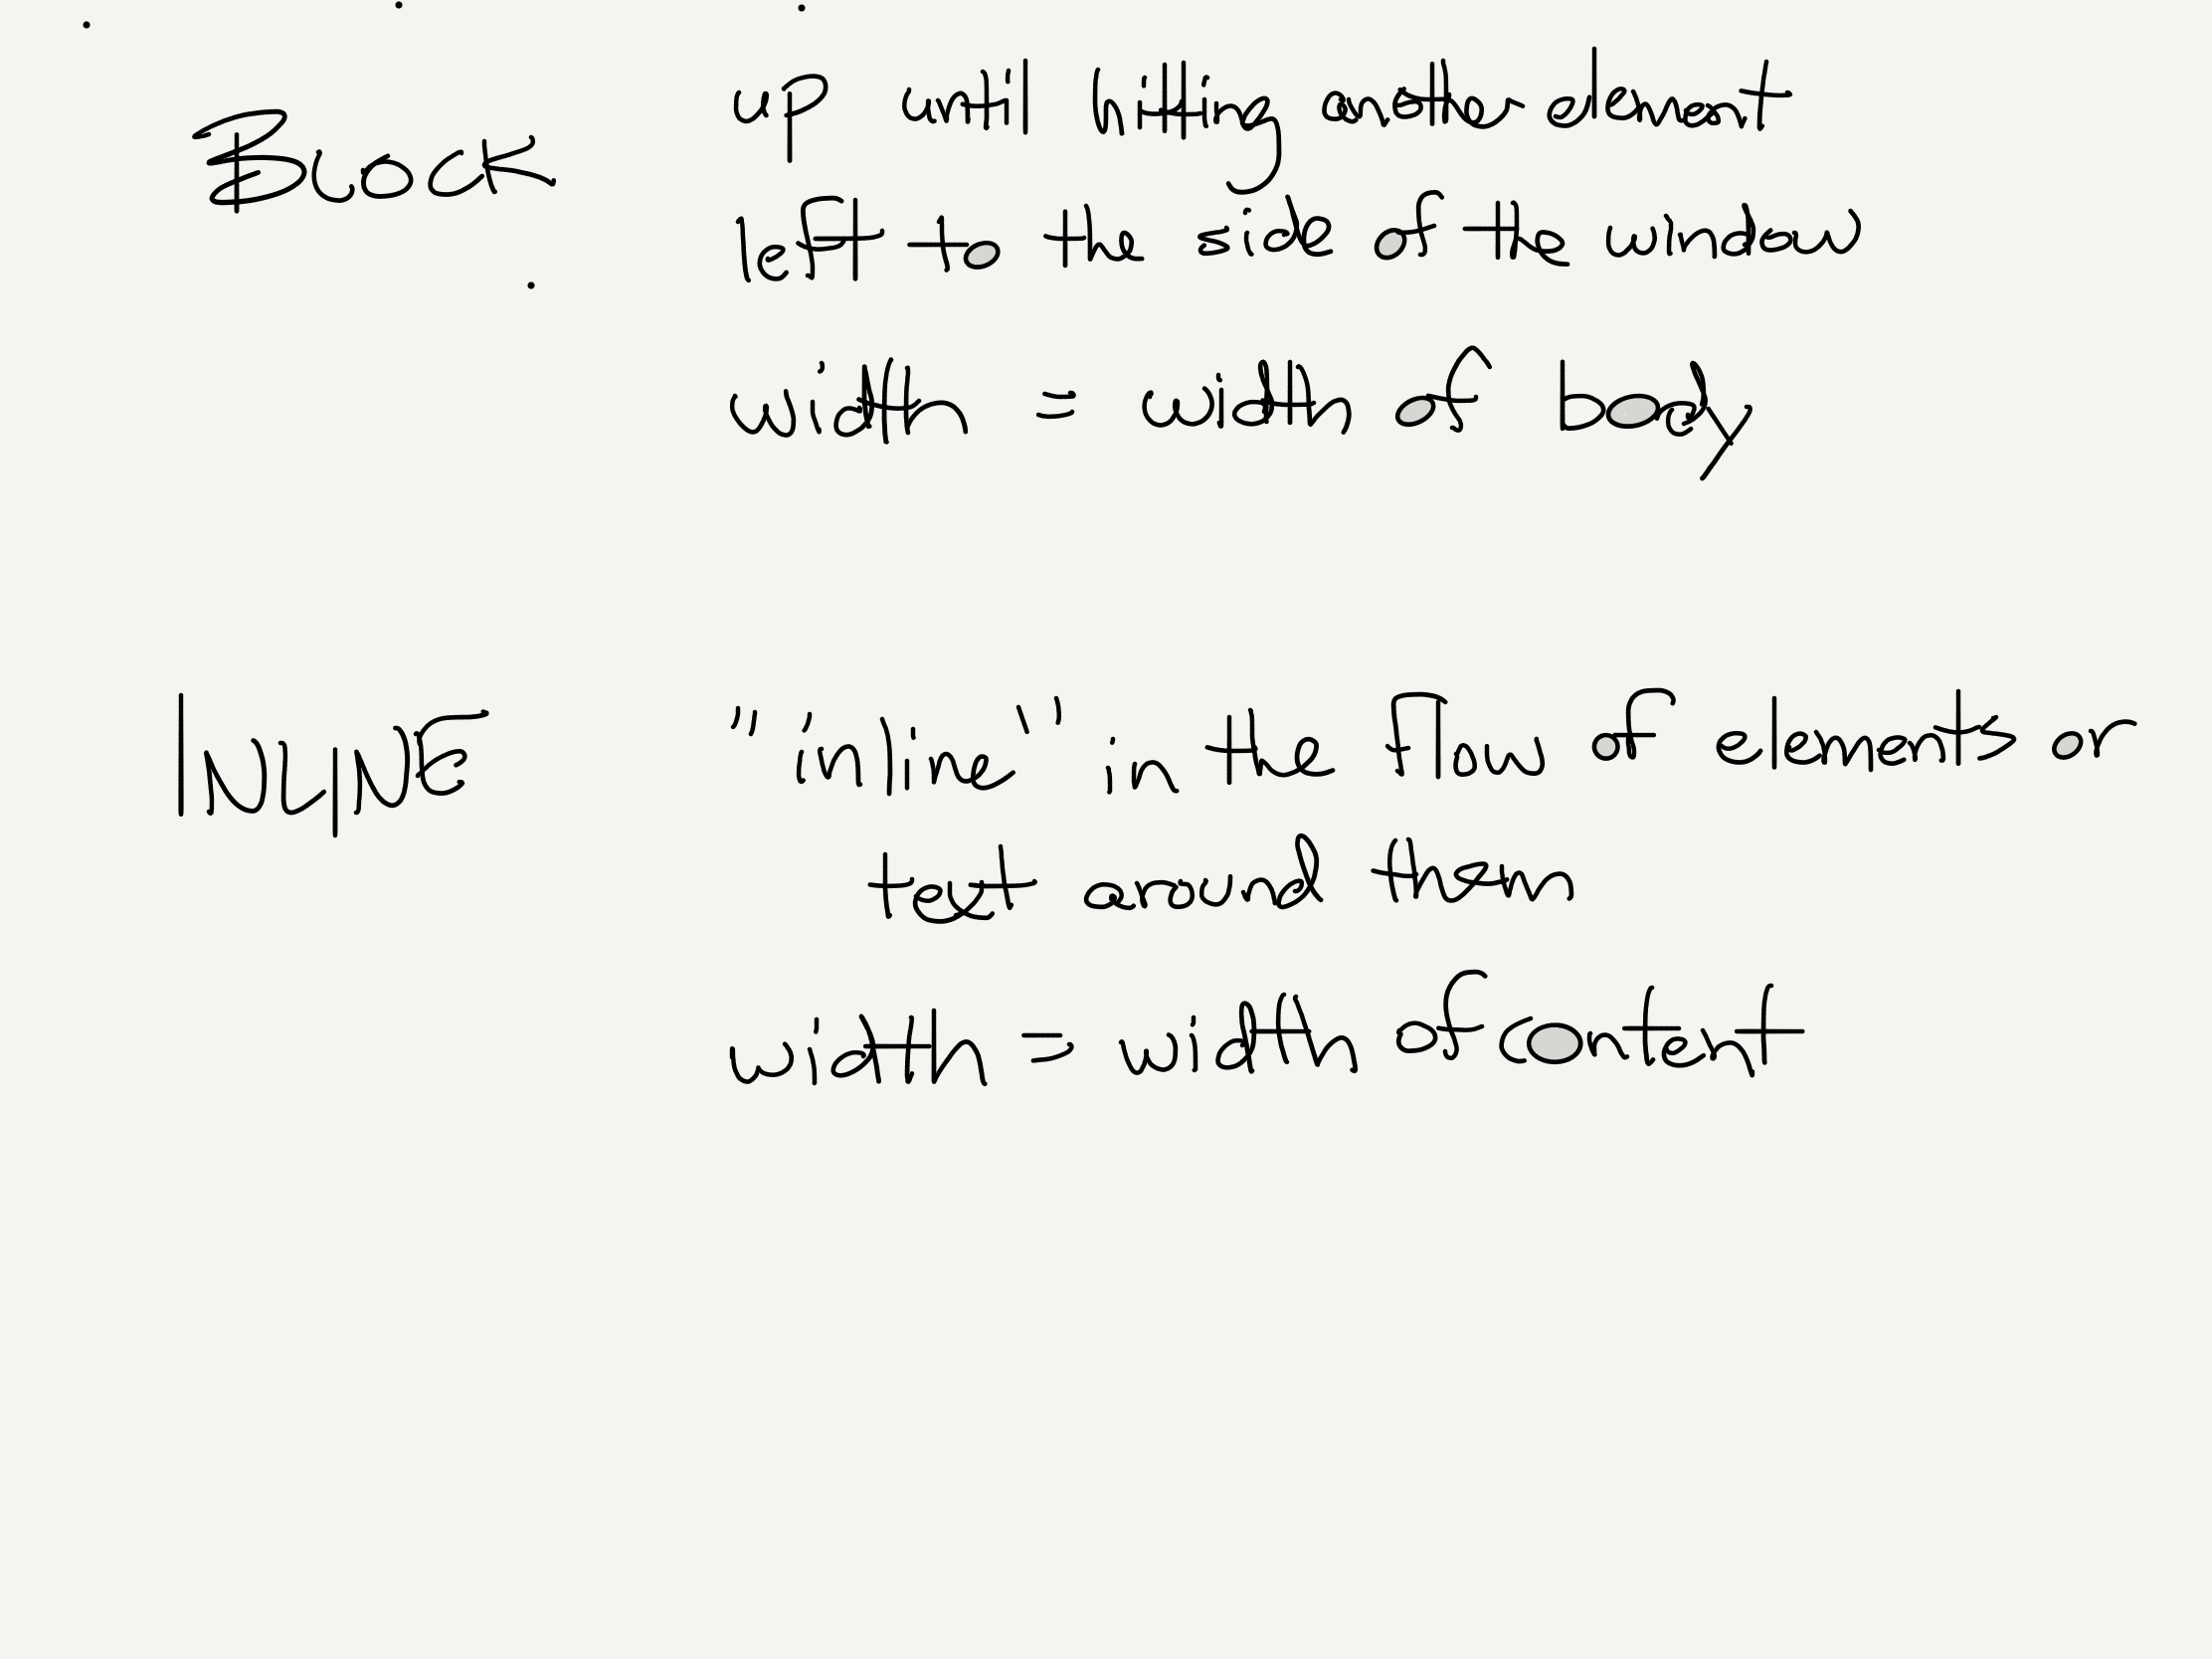 BLOCK
up until hitting another element
left to the side of the window
width = width of body
INLINE
"inline" in the flow of elements or
text around them
width = width of content